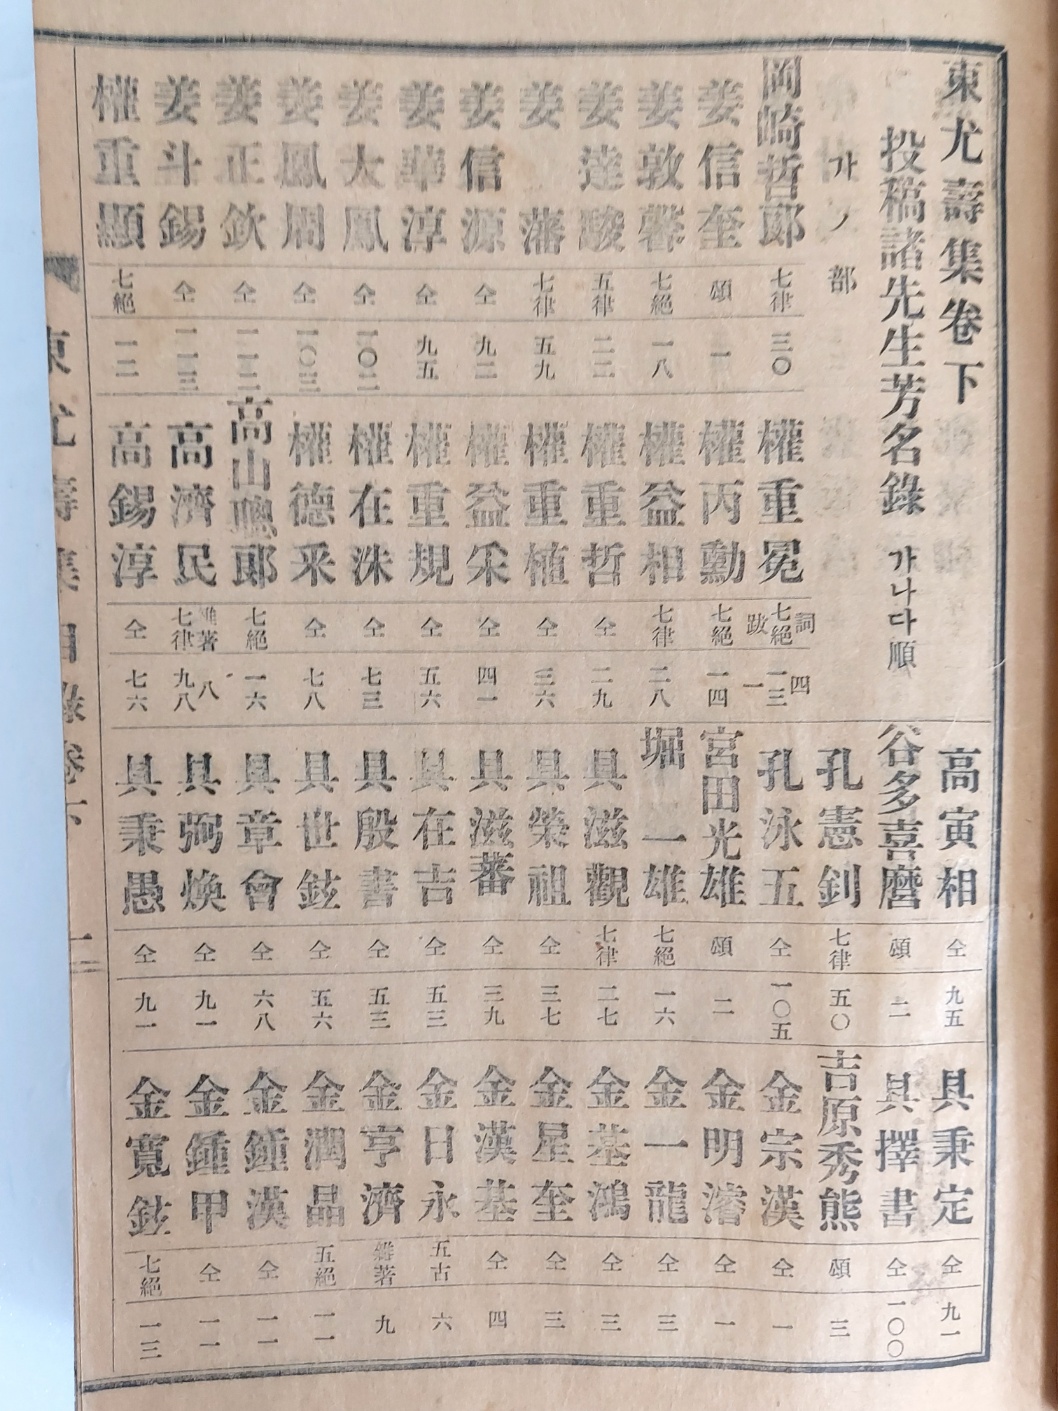 東尤壽集卷下
投稿諸先生芳名錄 가나다順
가ノ部
岡崎哲郞 七律 三〇
姜信奎 頌 一
姜敦馨 七絕 一八
姜達駿 五律 二二
姜藩 七律 五九
姜信源 仝 九二
姜華淳 仝 九五
姜大鳳 仝 一〇二
姜鳳周 仝 一〇三
姜正欽 仝 一一二
姜斗錫 仝 一一三
權重顯 七絕 一二
權重冕 詞 四 七絕 一三 跋 一
權丙勳 七絕 一四
權益相 七律 二八
權重哲 仝 二九
權重植 仝 三六
權益采 仝 四一
權重規 仝 五六
權在洙 仝 七三
權德釆 仝 七八
高山聰郞 七絕 一六
高濟民 雜著 八 七律 九八
高錫淳 仝 七六
高寅相 仝 九五
谷多喜麿 頌 二
孔憲釗 七律 五〇
孔泳五 仝 一〇五
宮田光雄 頌 二
堀一雄 七絕 一六
具滋觀 七律 二七
具榮祖 仝 三七
具滋蕃 仝 三九
具在吉 仝 五三
具殷書 仝 五三
具世鉉 仝 五六
具章會 仝 六八
具弼煥 仝 九一
具秉愚 仝 九一
具秉定 仝 九一
具擇書 仝 一〇〇
吉原秀熊 頌 三
金宗漢 仝 一
金明濬 仝 一
金一龍 仝 三
金基鴻 仝 三
金星奎 仝 三
金漢基 仝 四
金日永 五古 六
金亨濟 雜著 九
金潤晶 五絕 一一
金鍾漢 仝 一一
金鍾甲 仝 一一
金寬鉉 七絕 一三
東尤壽集目錄卷下 二